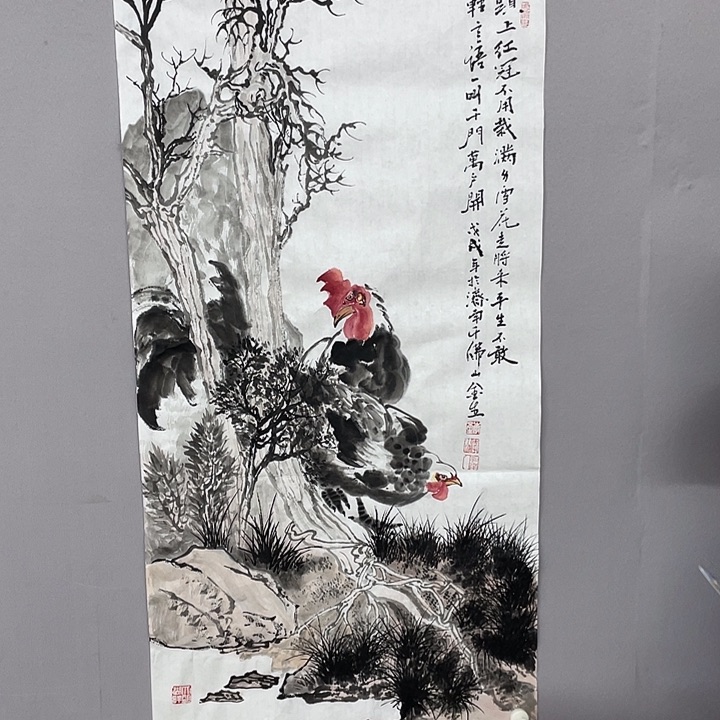 頭上红冠不用裁滿身雪花走將来平生不敢
輕言語一叫千門萬户開
戊戌年於濟南千佛山金生